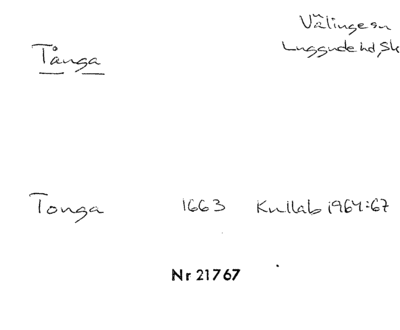 Tånga
Välinge sn
Luggude hd Sk
Tonga 1663 Kullab 1964:67
Nr 21767